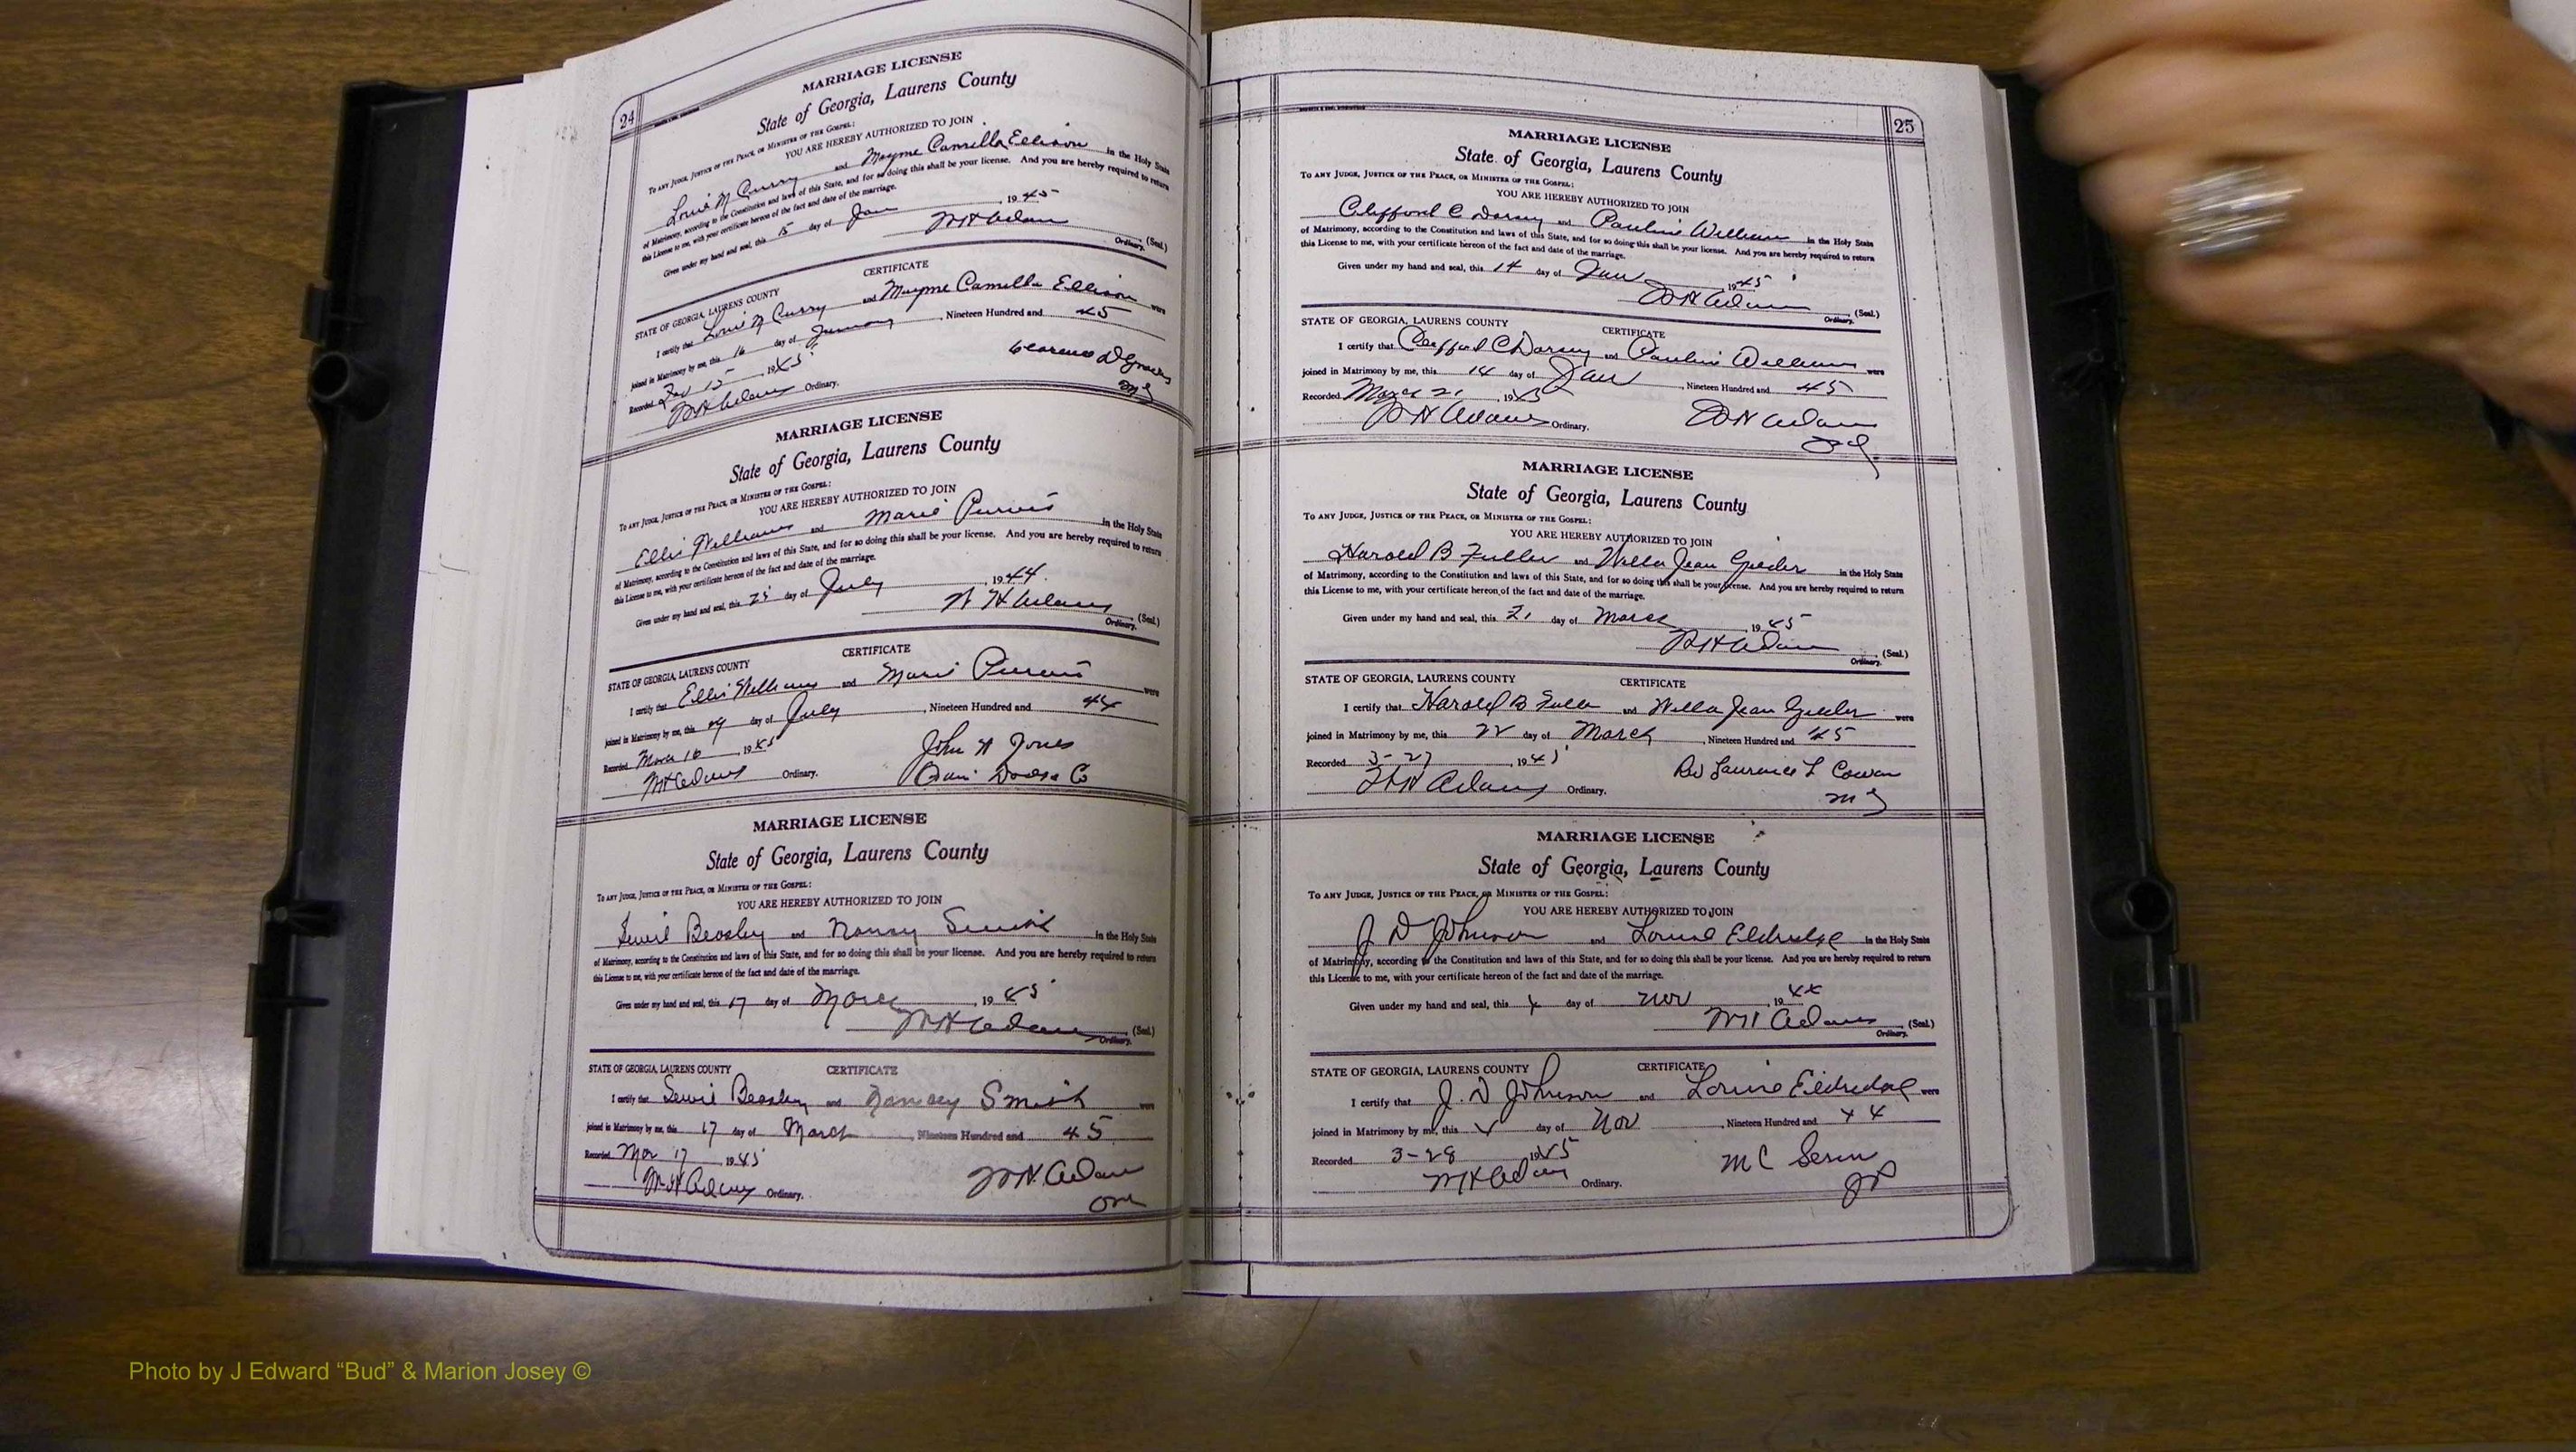 24
MARRIAGE LICENSE
State of Georgia, Laurens County
To any Judge, Justice of the Peace, or Minister of the Gospel:
YOU ARE HEREBY AUTHORIZED TO JOIN
Louie M Curry and Mayme Camilla Ellison in the Holy State
of Matrimony, according to the Constitution and laws of this State, and for so doing this shall be your license. And you are hereby required to return
this License to me, with your certificate hereon of the fact and date of the marriage.
Given under my hand and seal, this 15 day of Jan, 1945
W H Adams (Seal.)
Ordinary.
CERTIFICATE
STATE OF GEORGIA, LAURENS COUNTY
I certify that Louie M Curry and Mayme Camilla Ellison were
joined in Matrimony by me, this 16 day of January, Nineteen Hundred and 45
Recorded 15, 1945
Clarence D Graves
W H Adams Ordinary. MG
MARRIAGE LICENSE
State of Georgia, Laurens County
To any Judge, Justice of the Peace, or Minister of the Gospel:
YOU ARE HEREBY AUTHORIZED TO JOIN
Ellis Williams and Marie Purvis in the Holy State
of Matrimony, according to the Constitution and laws of this State, and for so doing this shall be your license. And you are hereby required to return
this License to me, with your certificate hereon of the fact and date of the marriage.
Given under my hand and seal, this 25 day of July, 1944
W H Adams (Seal.)
Ordinary.
CERTIFICATE
STATE OF GEORGIA, LAURENS COUNTY
I certify that Ellis Williams and Marie Purvis were
joined in Matrimony by me, this 29 day of July, Nineteen Hundred and 44
Recorded Mar 16, 1945 John W Jones
W H Adams Ordinary. Co
MARRIAGE LICENSE
State of Georgia, Laurens County
To any Judge, Justice of the Peace, or Minister of the Gospel:
YOU ARE HEREBY AUTHORIZED TO JOIN
Lewis Beasley and Nancy Smith in the Holy State
of Matrimony, according to the Constitution and laws of this State, and for so doing this shall be your license. And you are hereby required to return
this License to me, with your certificate hereon of the fact and date of the marriage.
Given under my hand and seal, this 17 day of March, 1945
W H Adams (Seal.)
Ordinary.
STATE OF GEORGIA, LAURENS COUNTY CERTIFICATE
I certify that Lewis Beasley and Nancy Smith were
joined in Matrimony by me, this 17 day of March, Nineteen Hundred and 45
Recorded Mar 17, 1945
W H Adams Ordinary. W H Adams
Ord
25
MARRIAGE LICENSE
State of Georgia, Laurens County
To any Judge, Justice of the Peace, or Minister of the Gospel:
YOU ARE HEREBY AUTHORIZED TO JOIN
Clifford C Dorsey and Pauline Williams in the Holy State
of Matrimony, according to the Constitution and laws of this State, and for so doing this shall be your license. And you are hereby required to return
this License to me, with your certificate hereon of the fact and date of the marriage.
Given under my hand and seal, this 14 day of Jan 1945
W H Adams (Seal.)
Ordinary.
STATE OF GEORGIA, LAURENS COUNTY CERTIFICATE
I certify that Clifford C Dorsey and Pauline Williams were
joined in Matrimony by me, this 14 day of Jan, Nineteen Hundred and 45
Recorded March 21, 1945
W H Adams Ordinary. W H Adams
MARRIAGE LICENSE
State of Georgia, Laurens County
To any Judge, Justice of the Peace, or Minister of the Gospel:
YOU ARE HEREBY AUTHORIZED TO JOIN
Harold B Fuller and Willa Jean Guider in the Holy State
of Matrimony, according to the Constitution and laws of this State, and for so doing this shall be your license. And you are hereby required to return
this License to me, with your certificate hereon of the fact and date of the marriage.
Given under my hand and seal, this 21 day of March 1945
W H Adams (Seal.)
Ordinary.
STATE OF GEORGIA, LAURENS COUNTY CERTIFICATE
I certify that Harold B Fuller and Willa Jean Guider were
joined in Matrimony by me, this 22 day of March, Nineteen Hundred and 45
Recorded 3-27, 1945 Rev Laurence L Cowan
W H Adams Ordinary. MG
MARRIAGE LICENSE
State of Georgia, Laurens County
To any Judge, Justice of the Peace, or Minister of the Gospel:
YOU ARE HEREBY AUTHORIZED TO JOIN
J D Johnson and Louise Eldridge in the Holy State
of Matrimony, according to the Constitution and laws of this State, and for so doing this shall be your license. And you are hereby required to return
this License to me, with your certificate hereon of the fact and date of the marriage.
Given under my hand and seal, this 4 day of Nov, 1944
W H Adams (Seal.)
Ordinary.
STATE OF GEORGIA, LAURENS COUNTY CERTIFICATE
I certify that J. D Johnson and Louise Eldridge were
joined in Matrimony by me, this day of Nov, Nineteen Hundred and 44
Recorded 3-28 1945 M C
W H Adams Ordinary. JP
Photo by J Edward “Bud” & Marion Josey ©